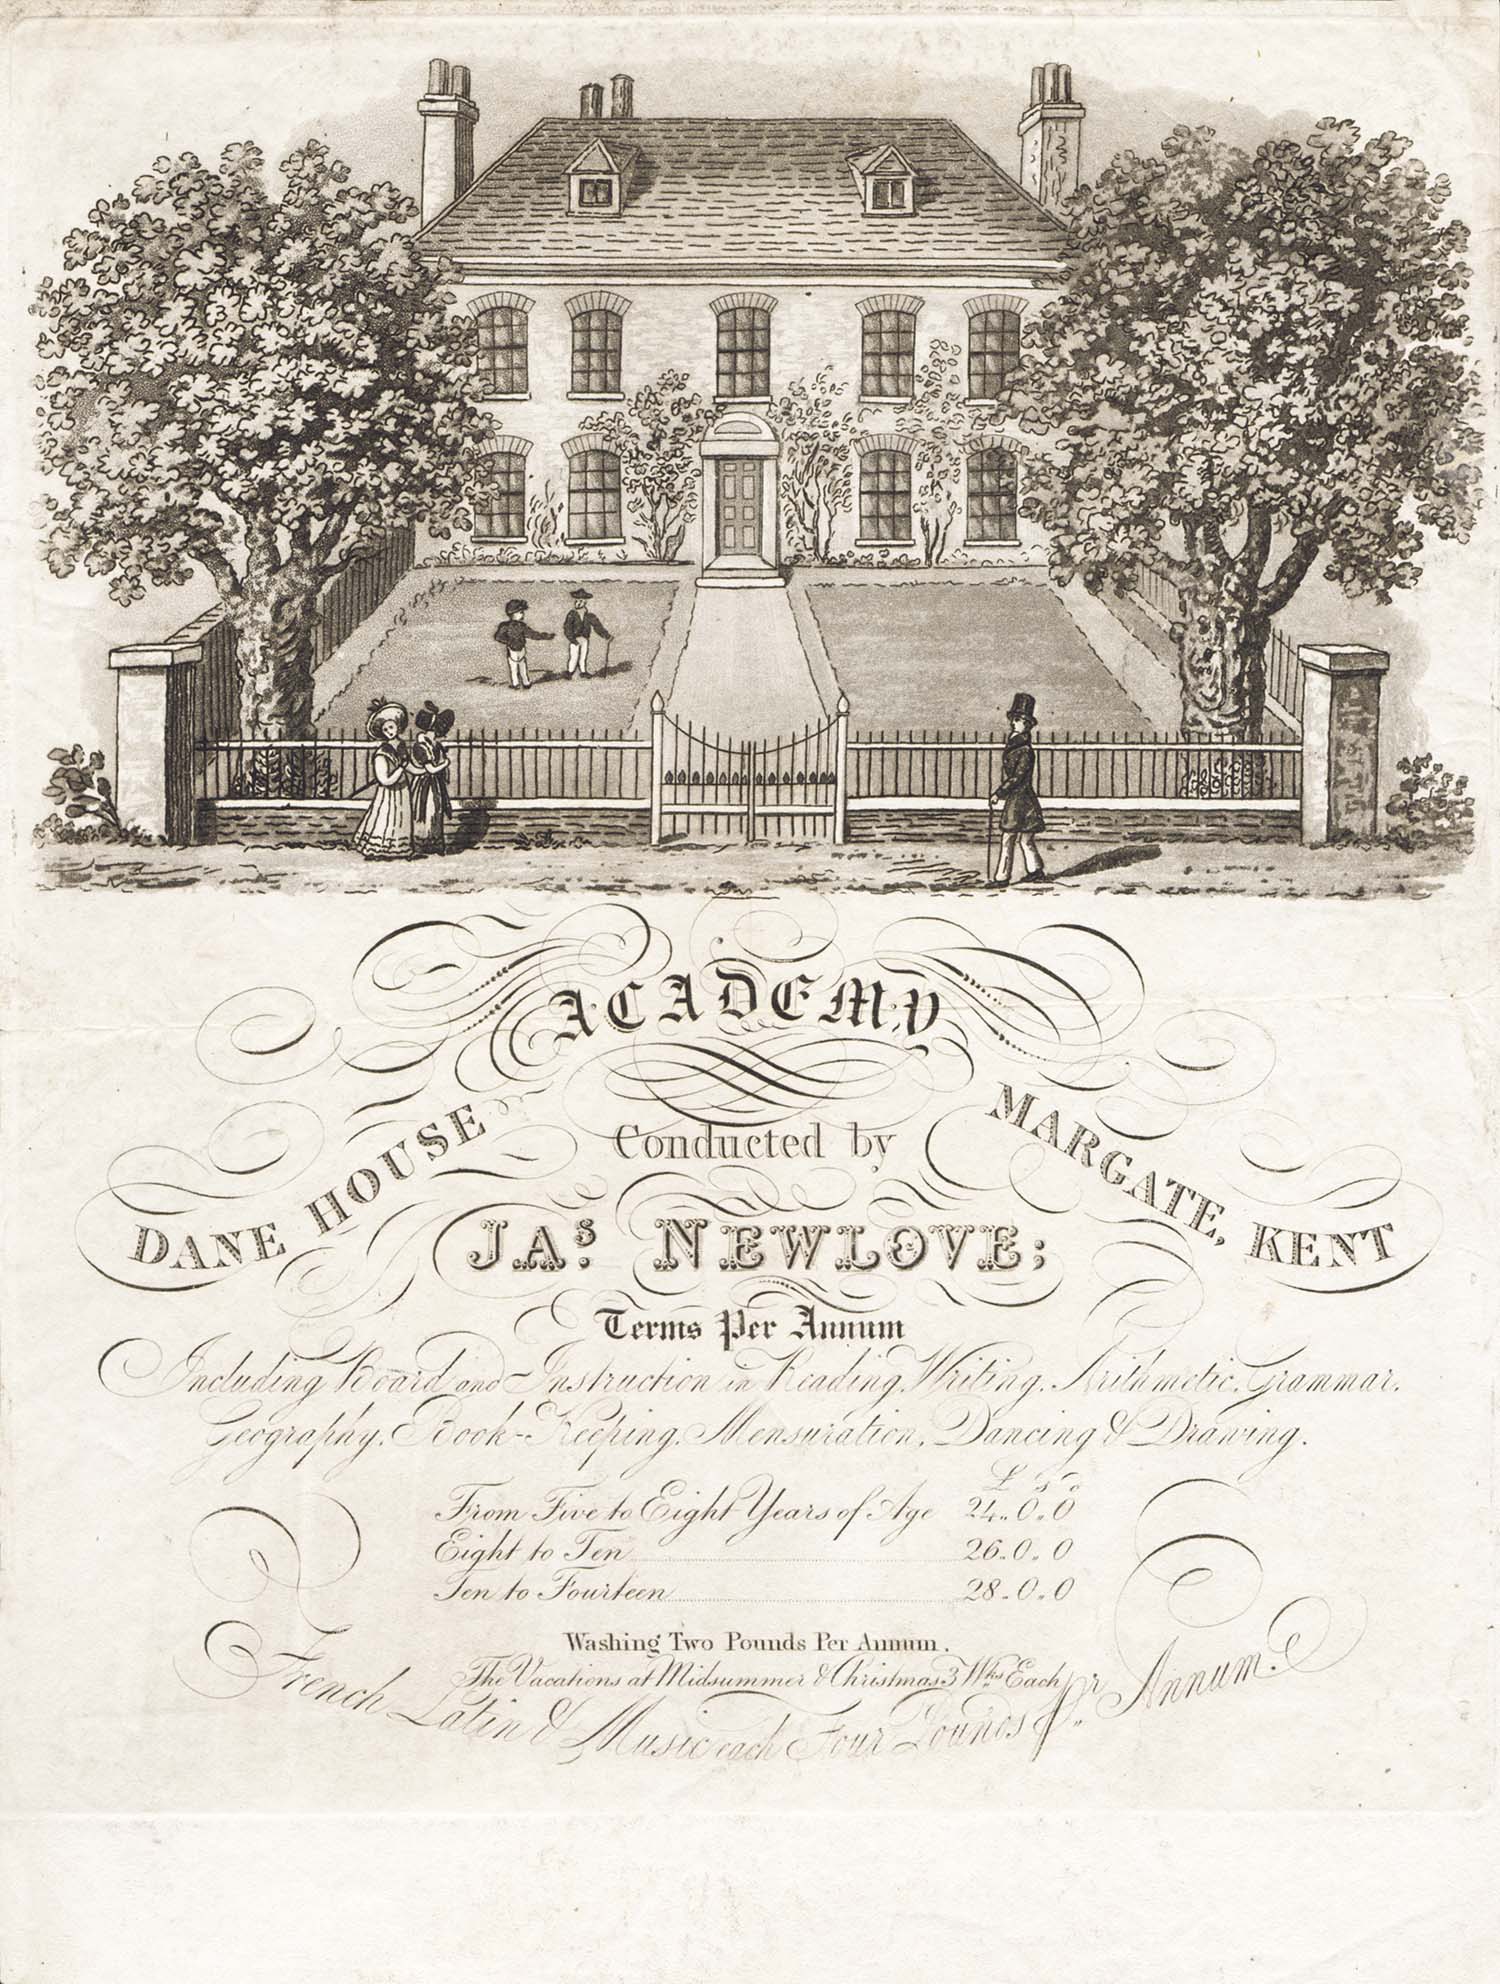 ACADEMY
DANE HOUSE
MARGATE, KENT
Conducted by
JAS. NEWLOVE;
Terms Per Annum
Including Board and Instruction in Reading, Writing, Arithmetic, Grammar,
Geography, Book-Keeping, Mensuration, Dancing & Drawing.
£ s d
From Five to Eight Years of Age 24.. 0.. 0
Eight to Ten 26.. 0.. 0
Ten to Fourteen 28.. 0.. 0
Washing Two Pounds Per Annum.
The Vacations at Midsummer & Christmas 3 Wks. Each
French Latin & Music each Four Pounds Pr. Annum.